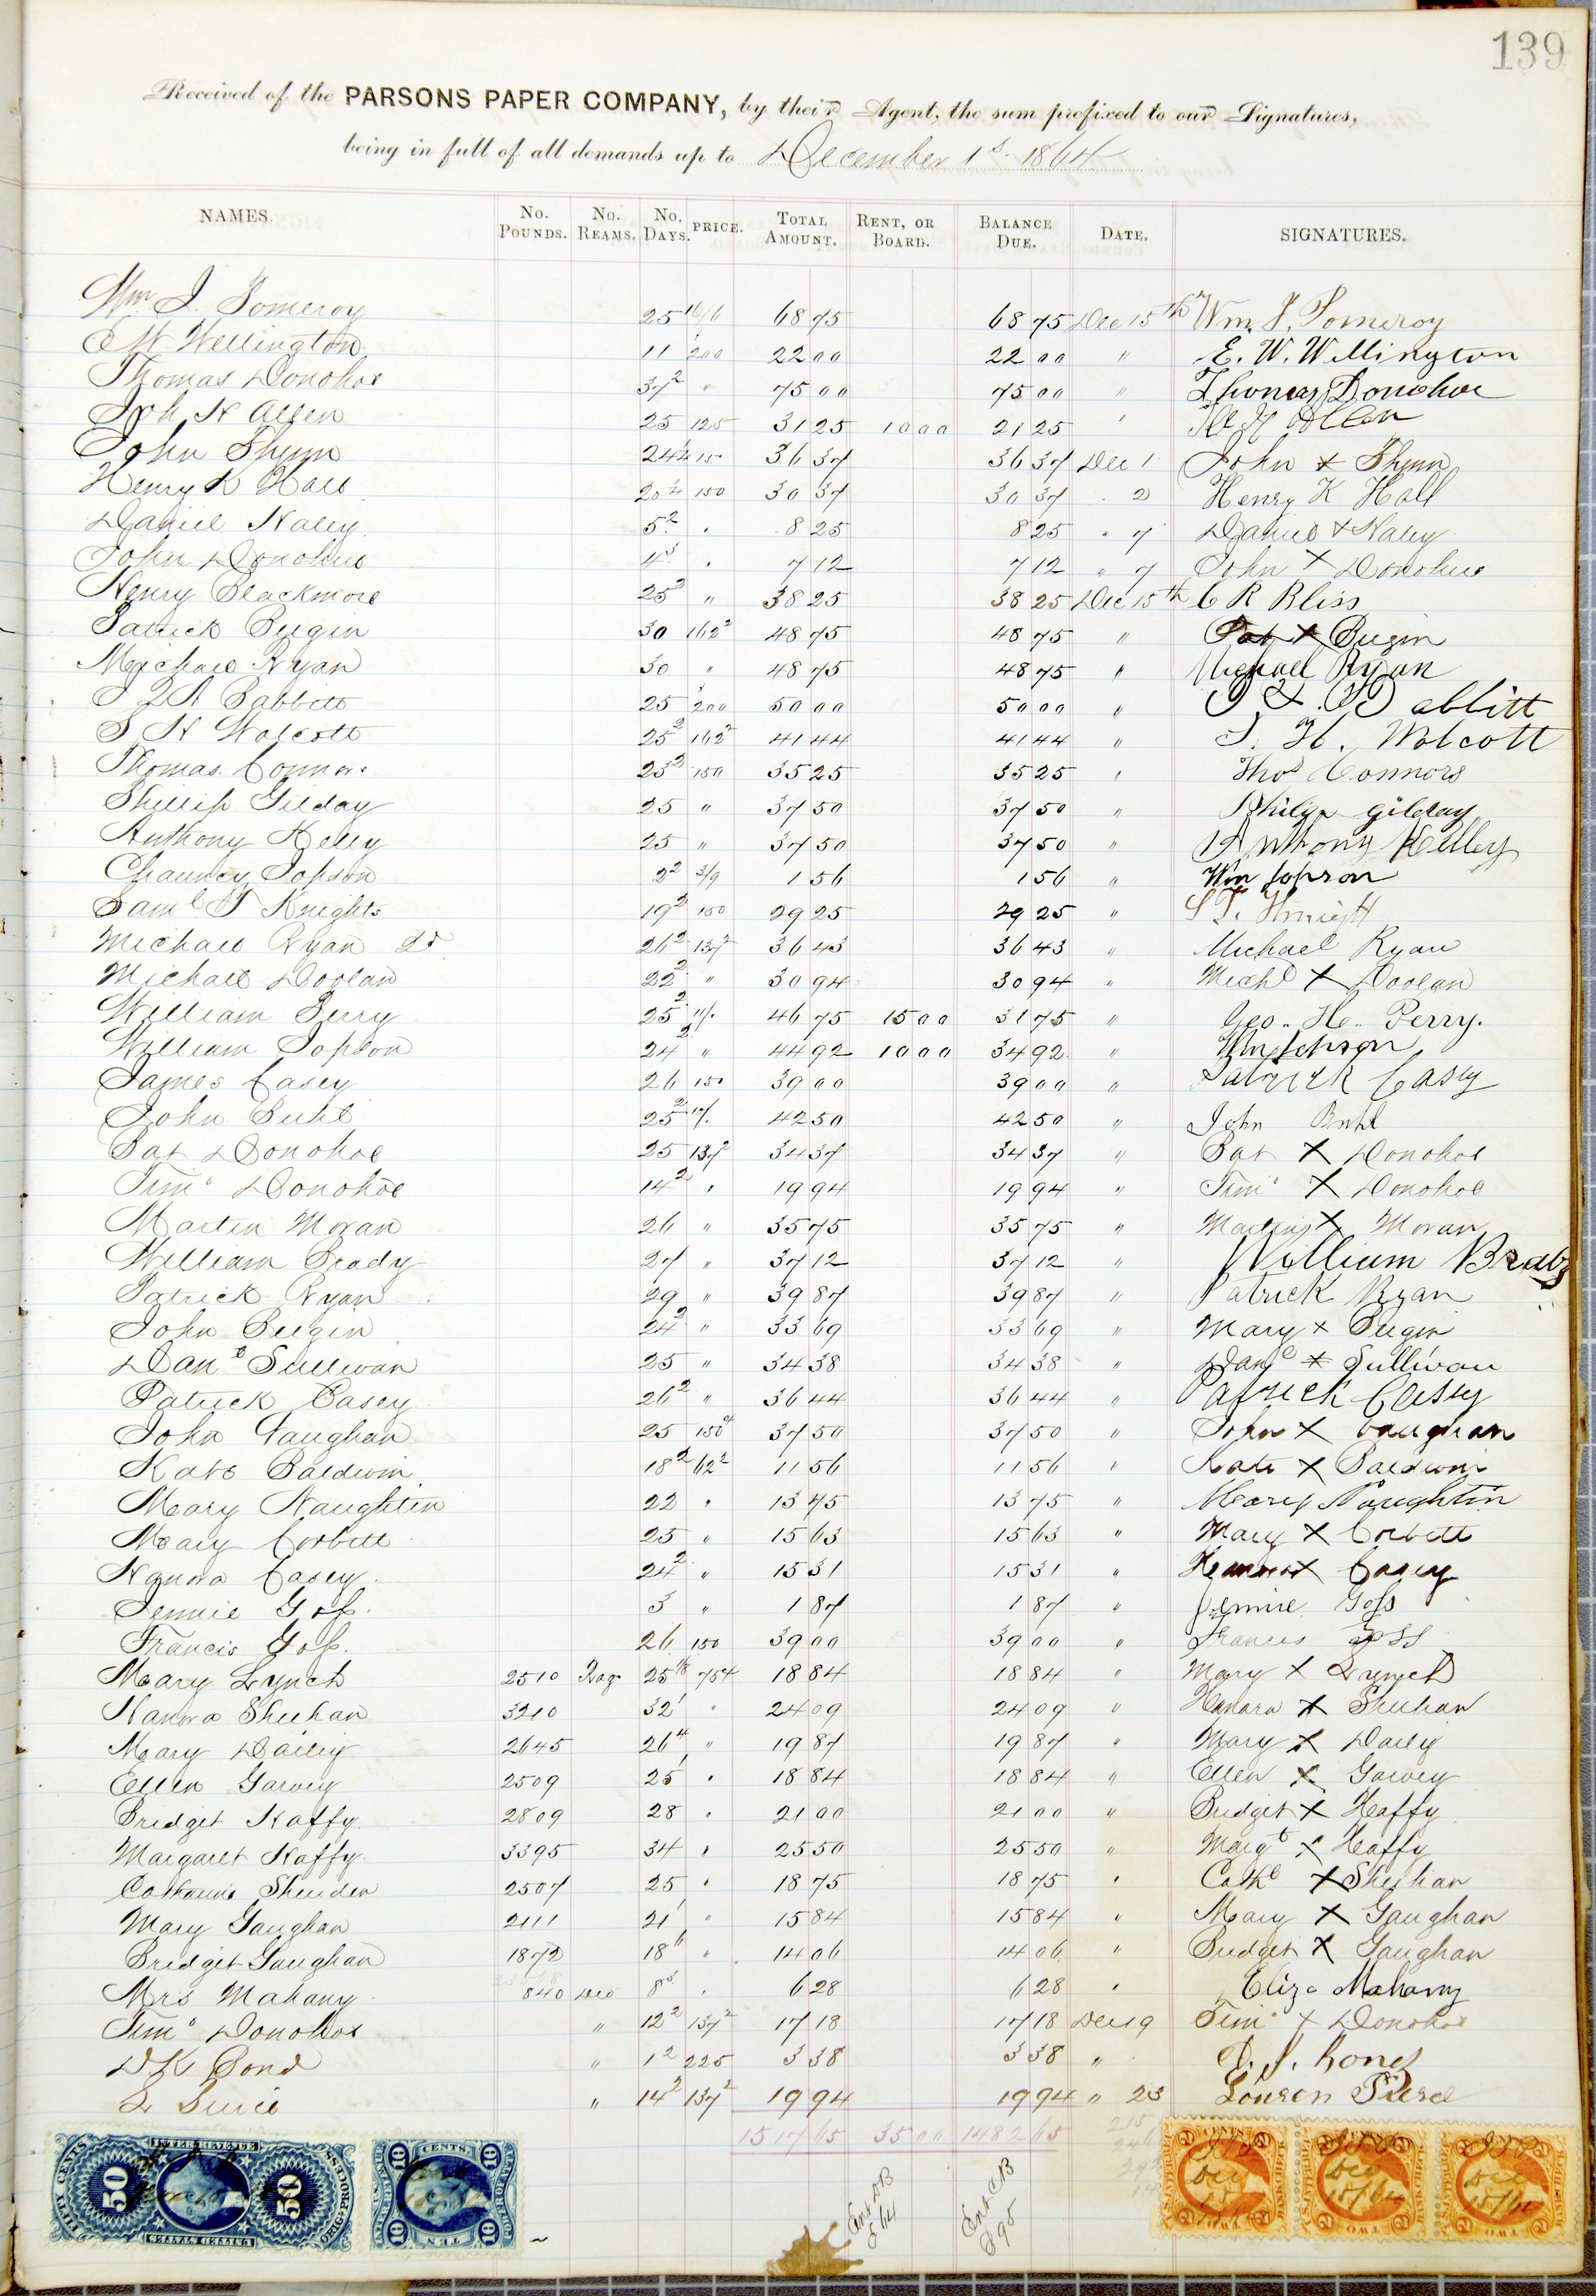 139
Received of the PARSONS PAPER COMPANY, by their Agent, the sum prefixed to our Signatures,
being in full of all demands up to December 1st 1864
NAMES. No. POUNDS. No. REAMS. No. DAYS. PRICE. TOTAL AMOUNT. RENT, OR BOARD. BALANCE DUE. DATE. SIGNATURES.
Wm J. Pomeroy 25 16/6 68 75 68 75 Dec 15th Wm J. Pomeroy
E W Wellington 11 200 22 00 22 00 " E. W. Wellington
Thomas Donohoe 37 2 " 75 00 75 00 " Thomas Donohoe
H Allen 25 125 31 25 10 00 21 25 " H Allen
John Flynn 24 1/4 150 36 37 36 37 Dec 1 John x Flynn
Henry K Hall 20 1/4 150 30 37 30 37 " 2 Henry K Hall
Daniel Haley 5 2 " 8 25 8 25 " 7 Daniel x Haley
John Donohue 4 3 " 7 12 7 12 " 7 John x Donohue
Henry Blackmore 25 2 " 38 25 38 25 Dec 15th C R Bliss
Patrick Bugin 30 162 2 48 75 48 75 " Pat x Bugin
Michael Ryan 30 " 48 75 48 75 " Michael Ryan
Babbitt 25 200 50 00 50 00 " Babbitt
S H Wolcott 25 2 162 2 41 44 41 44 " S. H. Wolcott
Thomas Connors 23 2 150 35 25 35 25 " Thos Connors
Phillip Gilday 25 " 37 50 37 50 " Philip Gilday
Anthony Kelly 25 " 37 50 37 50 " Anthony Kelley
Chauncy Jopson 2 2 3/9 1 56 1 56 " Wm Jopson
Saml T Knights 19 2 150 29 25 29 25 " S T. Knight
Michael Ryan 2d 26 2 137 2 36 43 36 43 " Michael Ryan
Michael Doolan 22 2 " 30 94 30 94 " Michl x Doolan
William Perry 25 2 11/. 46 75 15 00 31 75 " Geo. H. Perry.
William Jopson 24 2 " 44 92 10 00 34 92 " Wm Jopson
James Casey 26 150 39 00 39 00 " Patrick Casey
John Buhl 25 2 10/. 42 50 42 50 " John Buhl
Pat Donohoe 25 137 2 34 37 34 37 " Pat x Donohoe
Timo Donohoe 14 2 " 19 94 19 94 " Timo x Donohoe
Martin Moran 26 " 35 75 35 75 " Martin x Moran
William Brady 27 " 37 12 37 12 " William Brady
Patrick Ryan 29 " 39 87 39 87 " Patrick Ryan
John Bugin 24 2 " 33 69 33 69 " Mary x Bugin
Danl Sullivan 25 " 34 38 34 38 " Danl x Sullivan
Patrick Casey 26 2 " 36 44 36 44 " Patrick Casey
John Vaughan 25 150 37 50 37 50 " John x Vaughan
Kate Baldwin 18 2 62 2 11 56 11 56 " Kate x Baldwin
Mary Naughtin 22 " 13 75 13 75 " Mary Naughtin
Mary Corbett 25 " 15 63 15 63 " Mary x Corbett
Hanora Casey 24 2 " 15 31 15 31 " Hannora x Casey
Jennie Goss 3 " 1 87 1 87 " Jennie Goss
Francis Goss 26 150 39 00 39 00 " Frances Goss
Mary Lynch 2510 Rag 25 1/8 75 4 18 84 18 84 " Mary x Lynch
Hanora Sheehan 3210 32 1 " 24 09 24 09 " Hanora x Sheehan
Mary Dailey 2645 26 4 " 19 87 19 87 " Mary x Dailey
Ellen Garvey 2509 25 1 " 18 84 18 84 " Ellen x Garvey
Bridget Haffy 2809 28 " 21 00 21 00 " Bridget x Haffy
Margaret Haffy 3395 34 " 25 50 25 50 " Margt x Haffy
Catharine 2507 25 " 18 75 18 75 " Cathe x Sheehan
Mary Gaughan 2111 21 1 " 15 84 15 84 " Mary x Gaughan
Bridget Gaughan 1872 18 6 " 14 06 14 06 " Bridget x Gaughan
Mrs Mahany 840 Dec 8 3 " 6 28 6 28 " Eliza Mahany
Timo Donohoe " 12 2 137 2 17 18 17 18 Dec 19 Timo x Donohoe
D K Bond " 1 2 225 3 38 3 38 "
L " 14 2 137 2 19 94 19 94 " 23 Pierce
1517 65 35 00 1482 65
Ent DB
P 64
Ent CB
P 95
FIFTY CENTS INTER. REVENUE ORIG. PROCESS UNITED STATES 50 50
CENTS. TEN 10 10 10 10
Dec 15/64
Dec 15/64